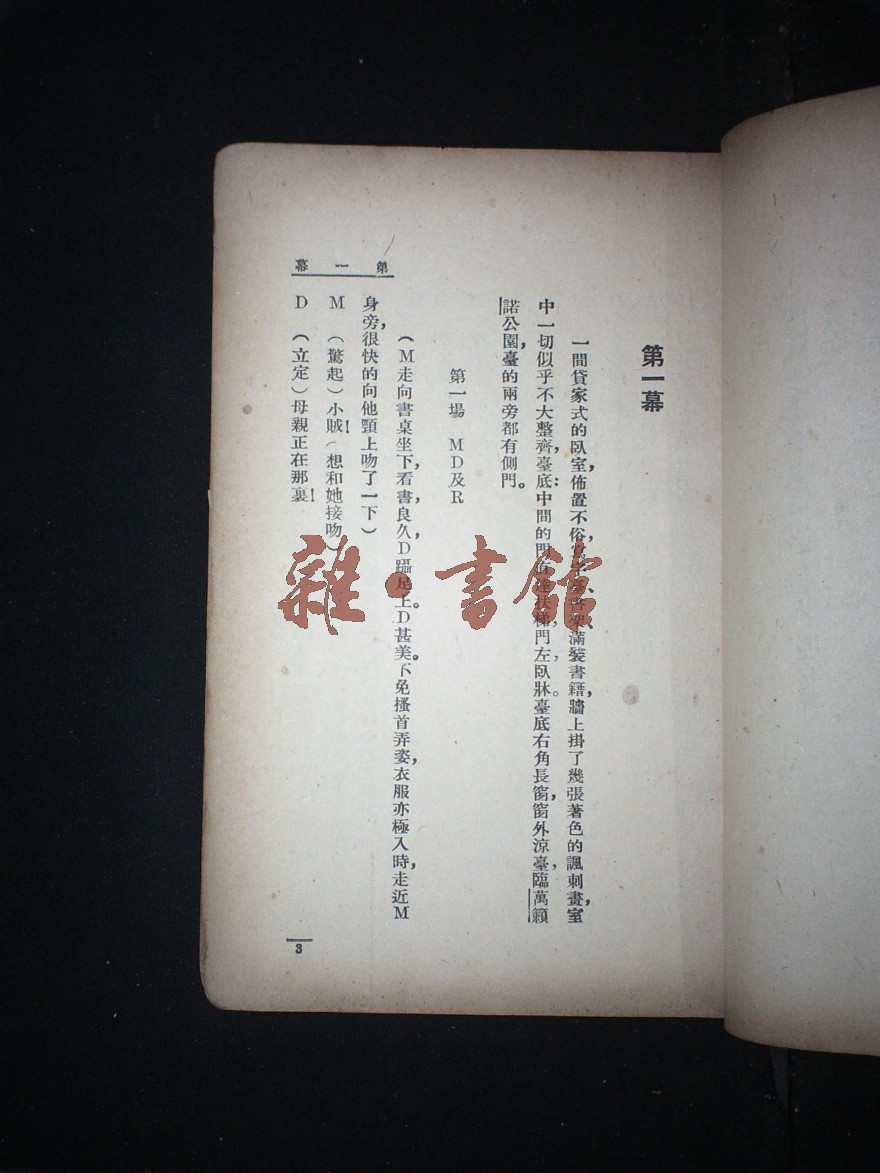 第一幕
一間貸家式的臥室，佈置不俗，書架滿裝書籍，牆上掛了幾張著色的諷刺畫，室
中一切似乎不大整齊，臺底：中間的門扶梯，門左臥牀。臺底右角長窗，窗外涼臺，臨萬籟
諾公園，臺的兩旁都有側門。
第一場　MD及R
（M走向書桌坐下，看書，良久，D躡足上。D甚美。不免搔首弄姿，衣服亦極入時，走近M
身旁，很快的向他頸上吻了一下）
M　（驚起）小賊！（想和她接吻）
D　（立定）母親正在那裏！
第一幕
3
雜·書館